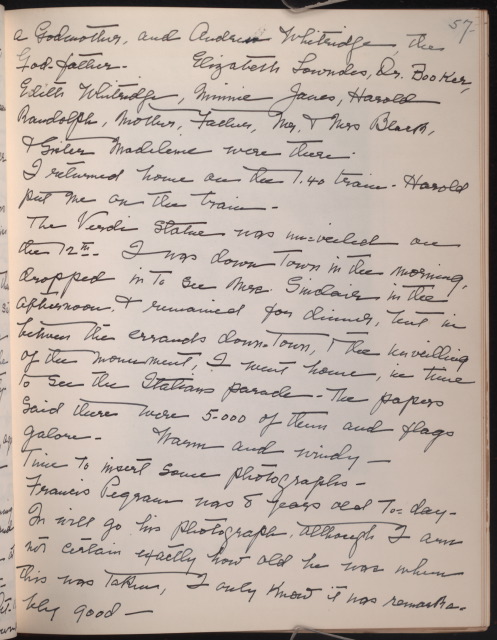 57-
a Godmother, and Andrew Whitridge, the
God-father - Elizabeth Lowndes, Dr. Booker,
Edith Whitridge, Minnie Janes, Harold
Randolph, Mother, Father, Mr. & Mrs Black,
& Sister Madeleine were there.
I returned home on the 7.40 train - Harold
put me on the train -
The Verdi Statue was un-veiled on
the 12th - I was down Town in the morning,
dropped in to see Mrs. Sinclair in the
afternoon, & remained for dinner, but in
between the errands down-Town, & the unveilling
of the monument, I went home, in time
To see the Italians parade - The papers
Said there were 5-000 of them and flags
galore - Warm and windy -
Time To insert Some photographs -
Francis Pegram was 8 years old To-day -
In will go his photograph, although I am
not certain exactly how old he was when
this was Taken, I only know it was remarka-
bly good -